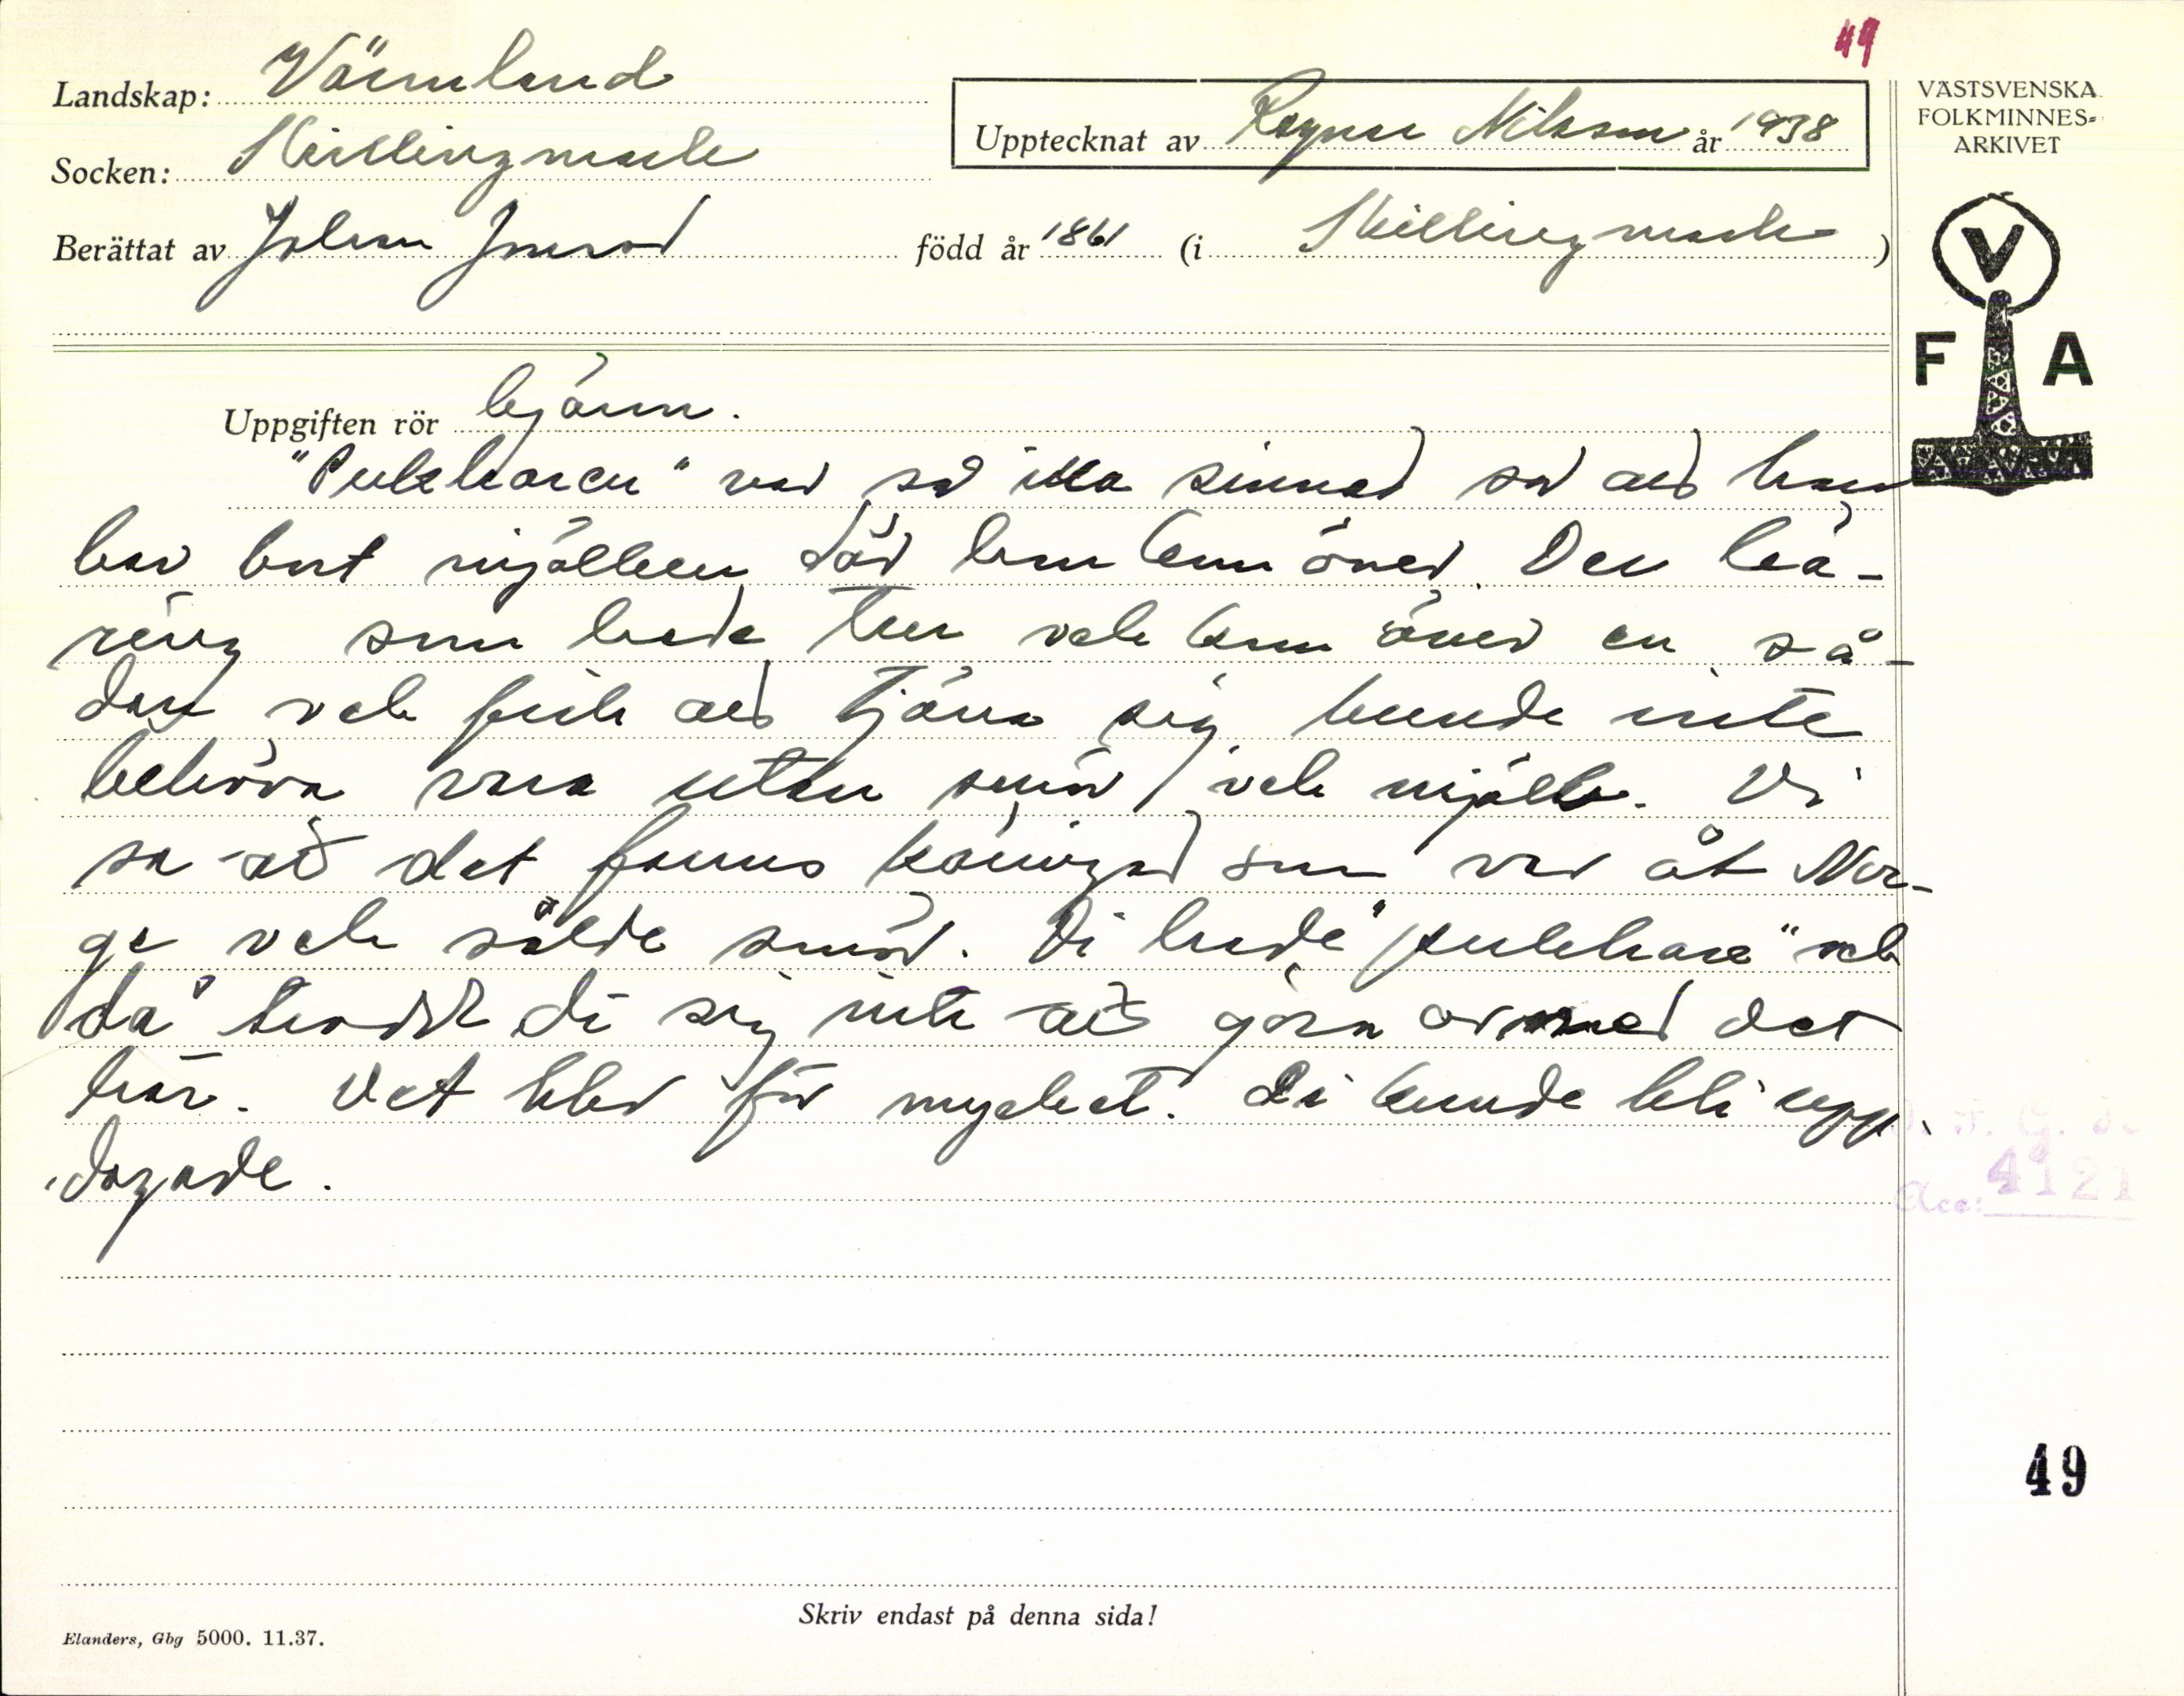 49
Landskap: Värmland
Upptecknat av Ragnar Nilsson år 1938
VÄSTSVENSKA
FOLKMINNES-
ARKIVET
Socken: Skillingmark
Berättat av Johan Jonsson född år 1861 (i Skillingmark)
V
F A
Uppgiften rör björn.
"Pukharen" var så illa sinnad så att han
bar bort mjölken där han kom över. Den kä-
ring som hade tur och kom över en så-
dan och fick att tjäna sig kunde inte
behöva vara utan smör och mjölk. Vi
sa att det fanns käringar som var åt Nor-
ge och sålde smör. Di hade "pukhare" och
då trodde di sig inte att göra av med det
här. Det blev för mycket. Di kunde bli upp-
dagade.
Acc: 4121
49
Skriv endast på denna sida!
Elanders, Gbg 5000. 11.37.